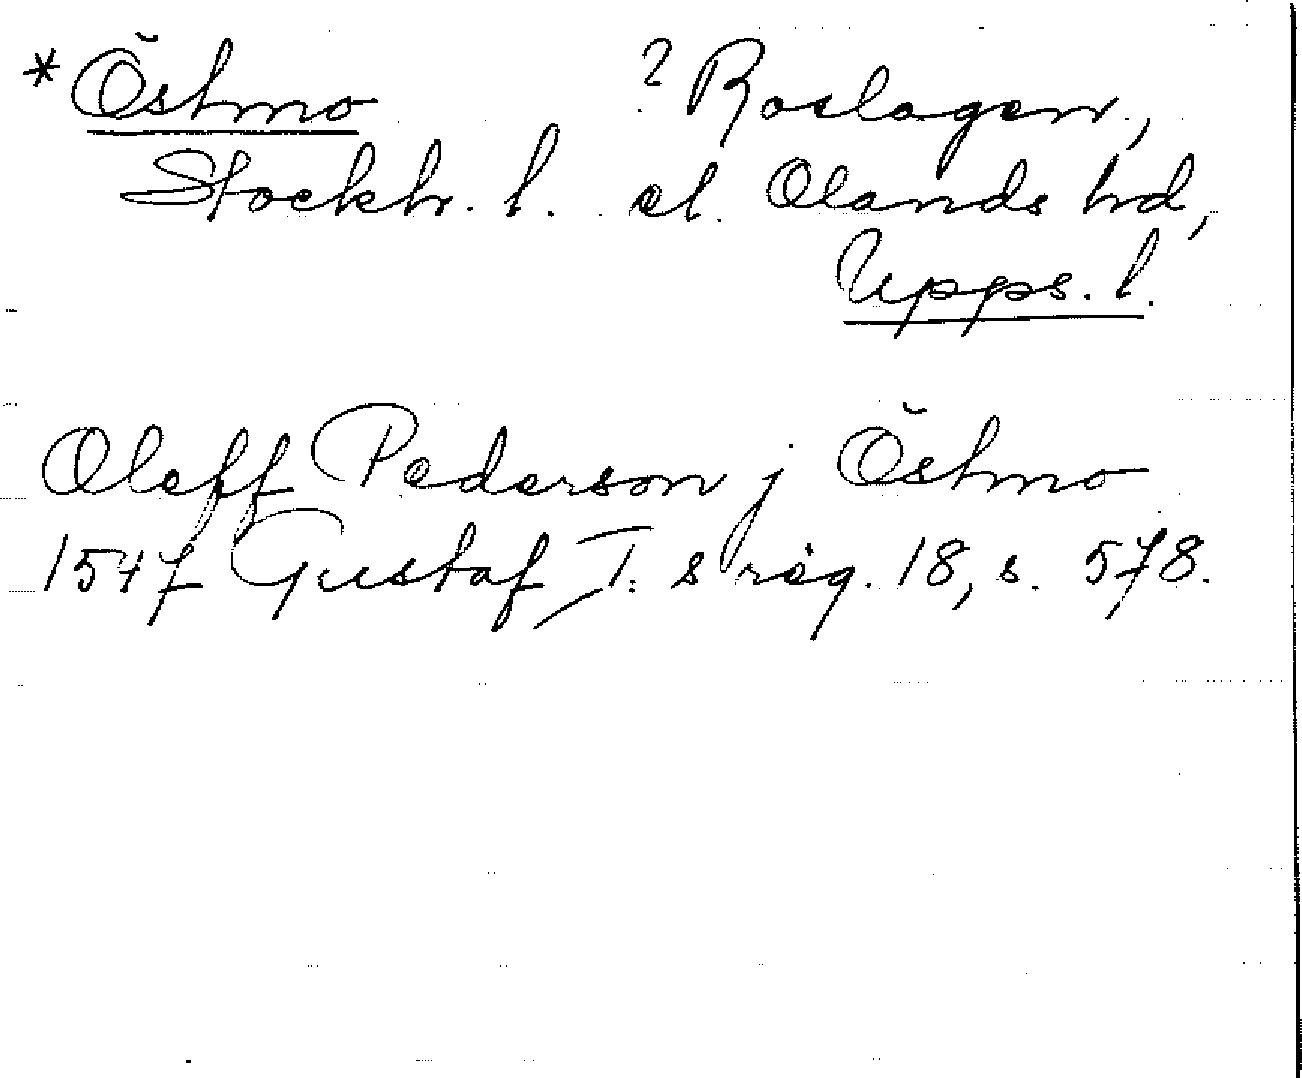 * Östmo ? Roslagen,
Stockh. l. el. Olands hd,
Upps. l.
Oleff Pederson j Östmo
1547 Gustaf I:s reg. 18, s. 578.